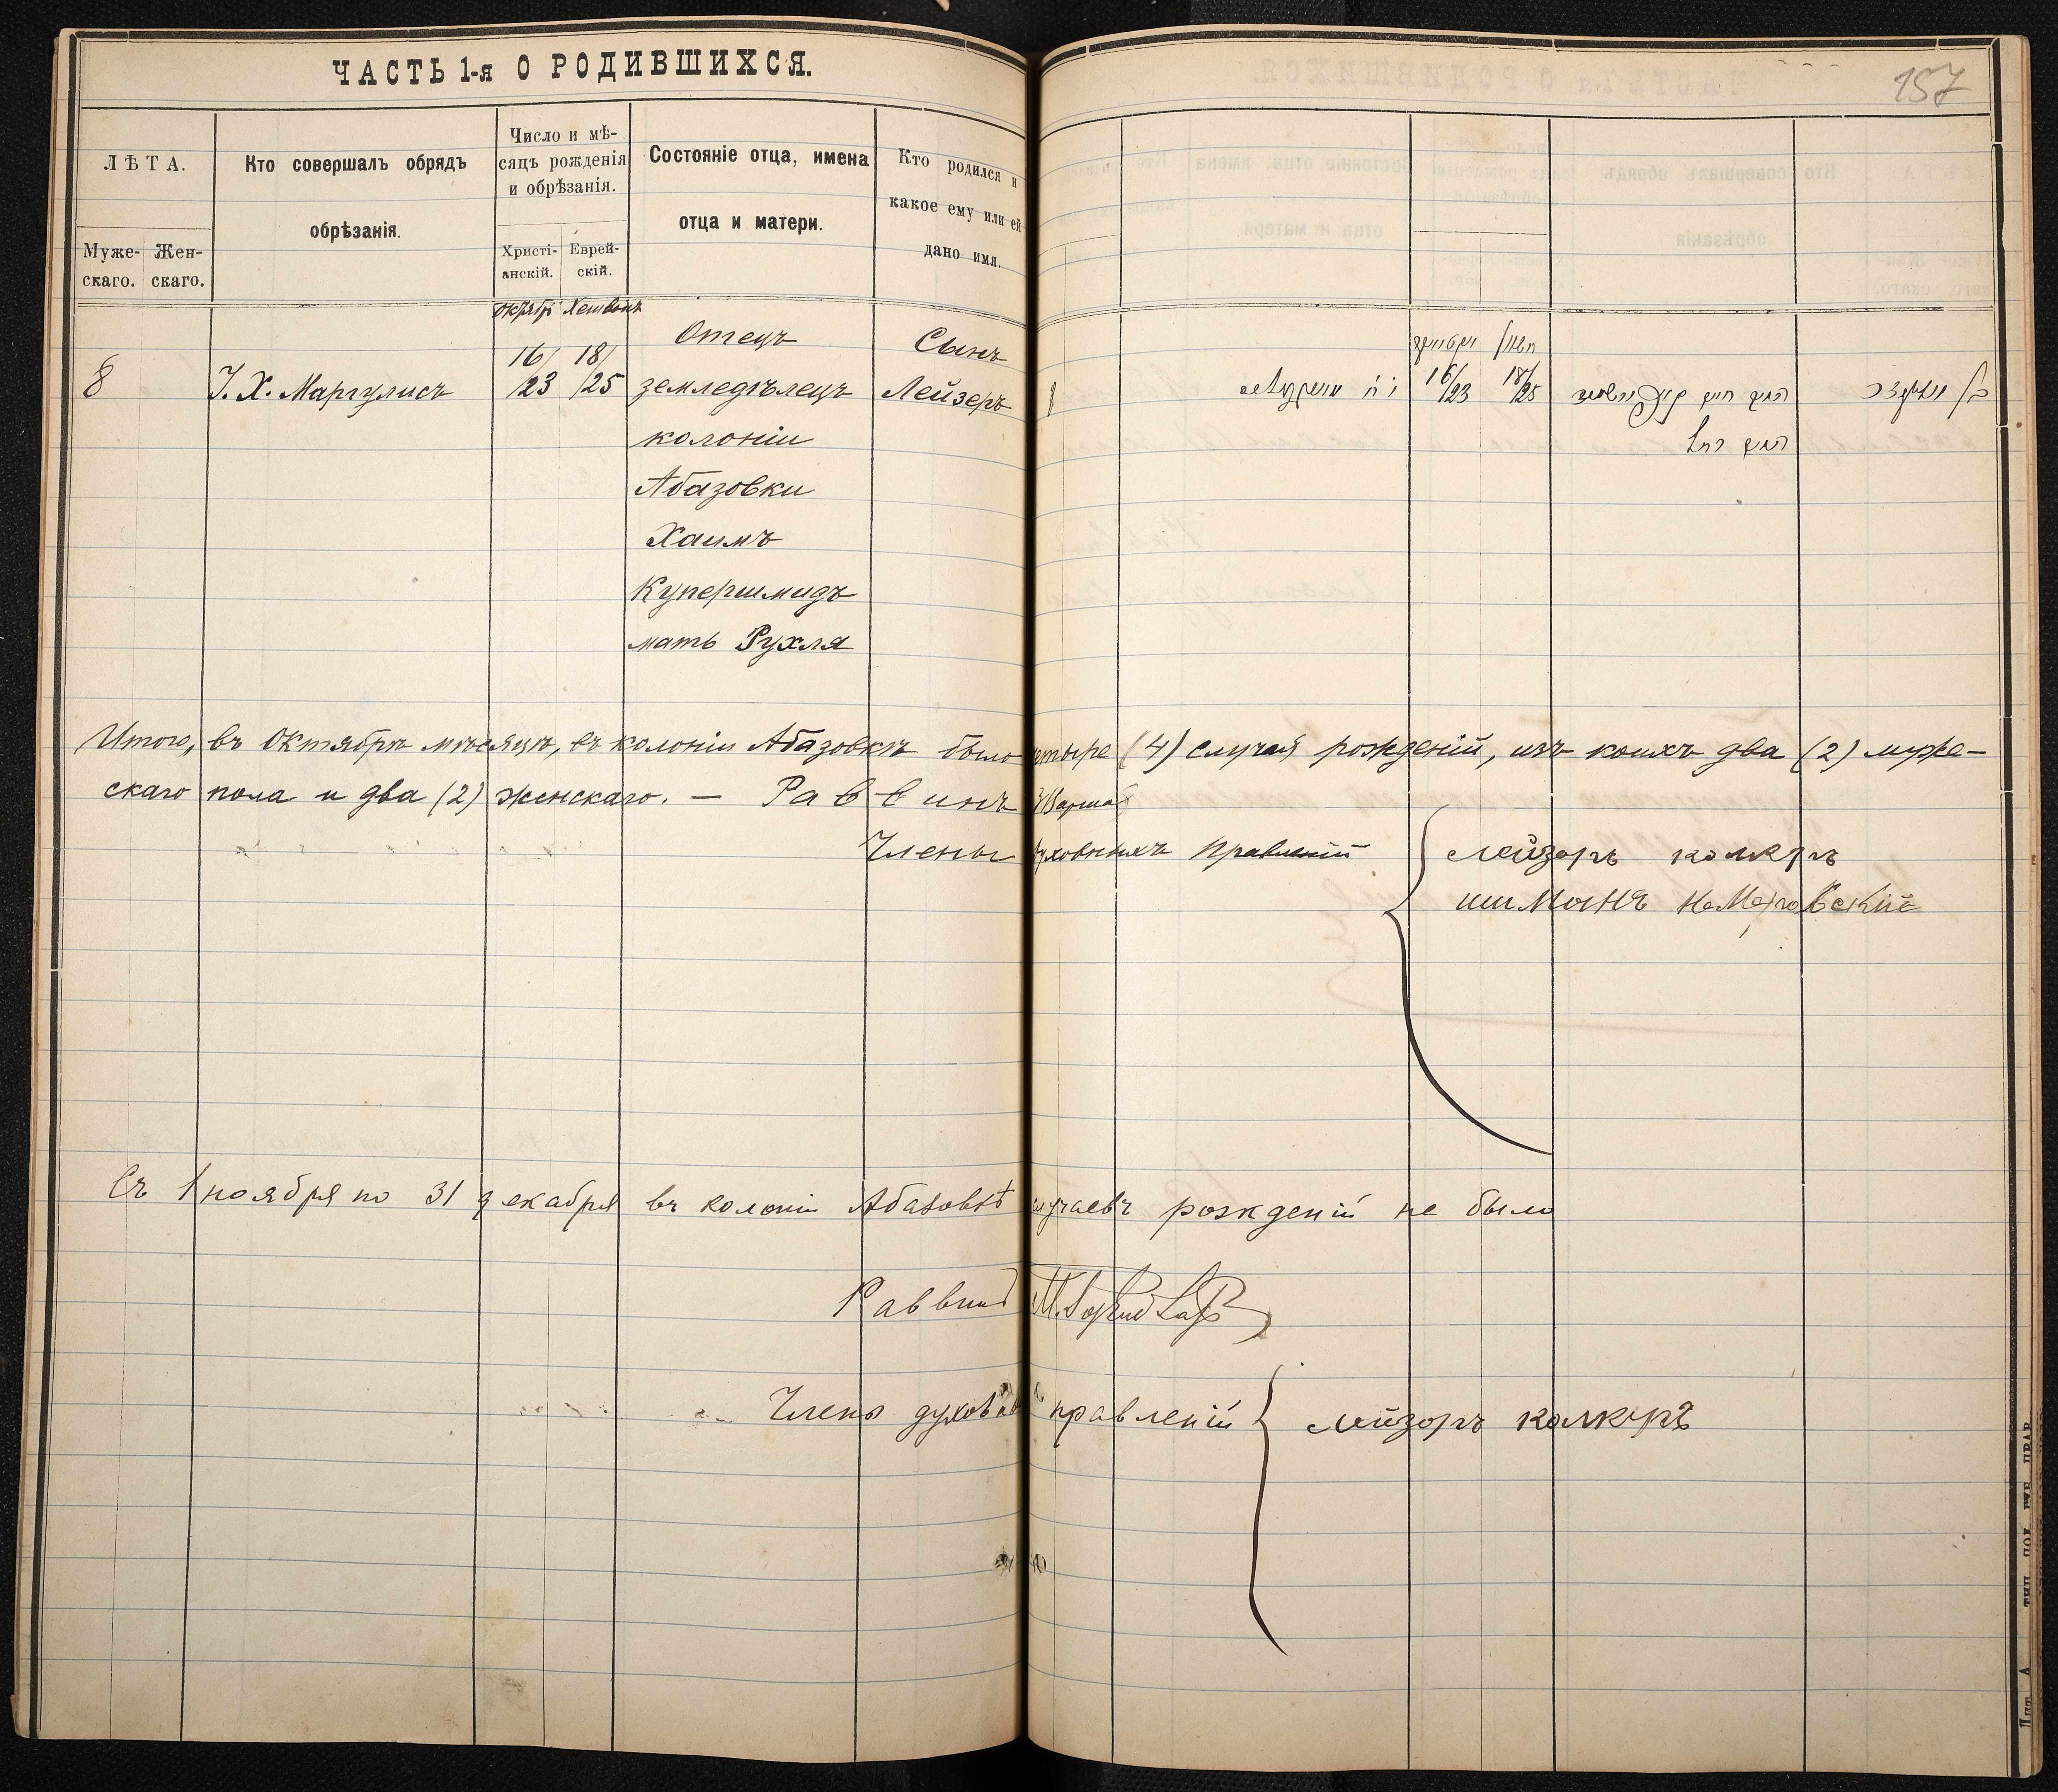 ЧАСТЬ 1-я О РОДИВШИХСЯ.
157
ЛѢТА.
Муже-
скаго.
Жен-
скаго.
Кто совершалъ обрядъ
обрѣзанія.
Число и мѣ-
сяцъ рожденія
и обрѣзанія.
Христі-
анскій.
Еврей-
скій.
Состояніе отца, имена
отца и матери.
Кто родился и
какое ему или ей
дано имя.
8
І. Х. Маргулисъ
16/23
18/25
Отецъ
земледѣлецъ
колоніи
Абазовки
Хаимъ
Купершмидъ
мать Рухля
Сынъ
Лейзеръ
16/23
18/25
Итого, въ Октябрѣ мѣсяцѣ, въ колоніи Абазовкѣ было четыре (4) случая рожденій, изъ коихъ два (2) муже-
скаго пола и два (2) женскаго. — Раввинъ
Члены духовныхъ правленій
лейзоръ колкеръ
Съ 1 ноября по 31 декабря въ колоніи Абазовкѣ случаевъ рожденій не было
Раввинъ
Члены правленій лейзоръ колкеръ